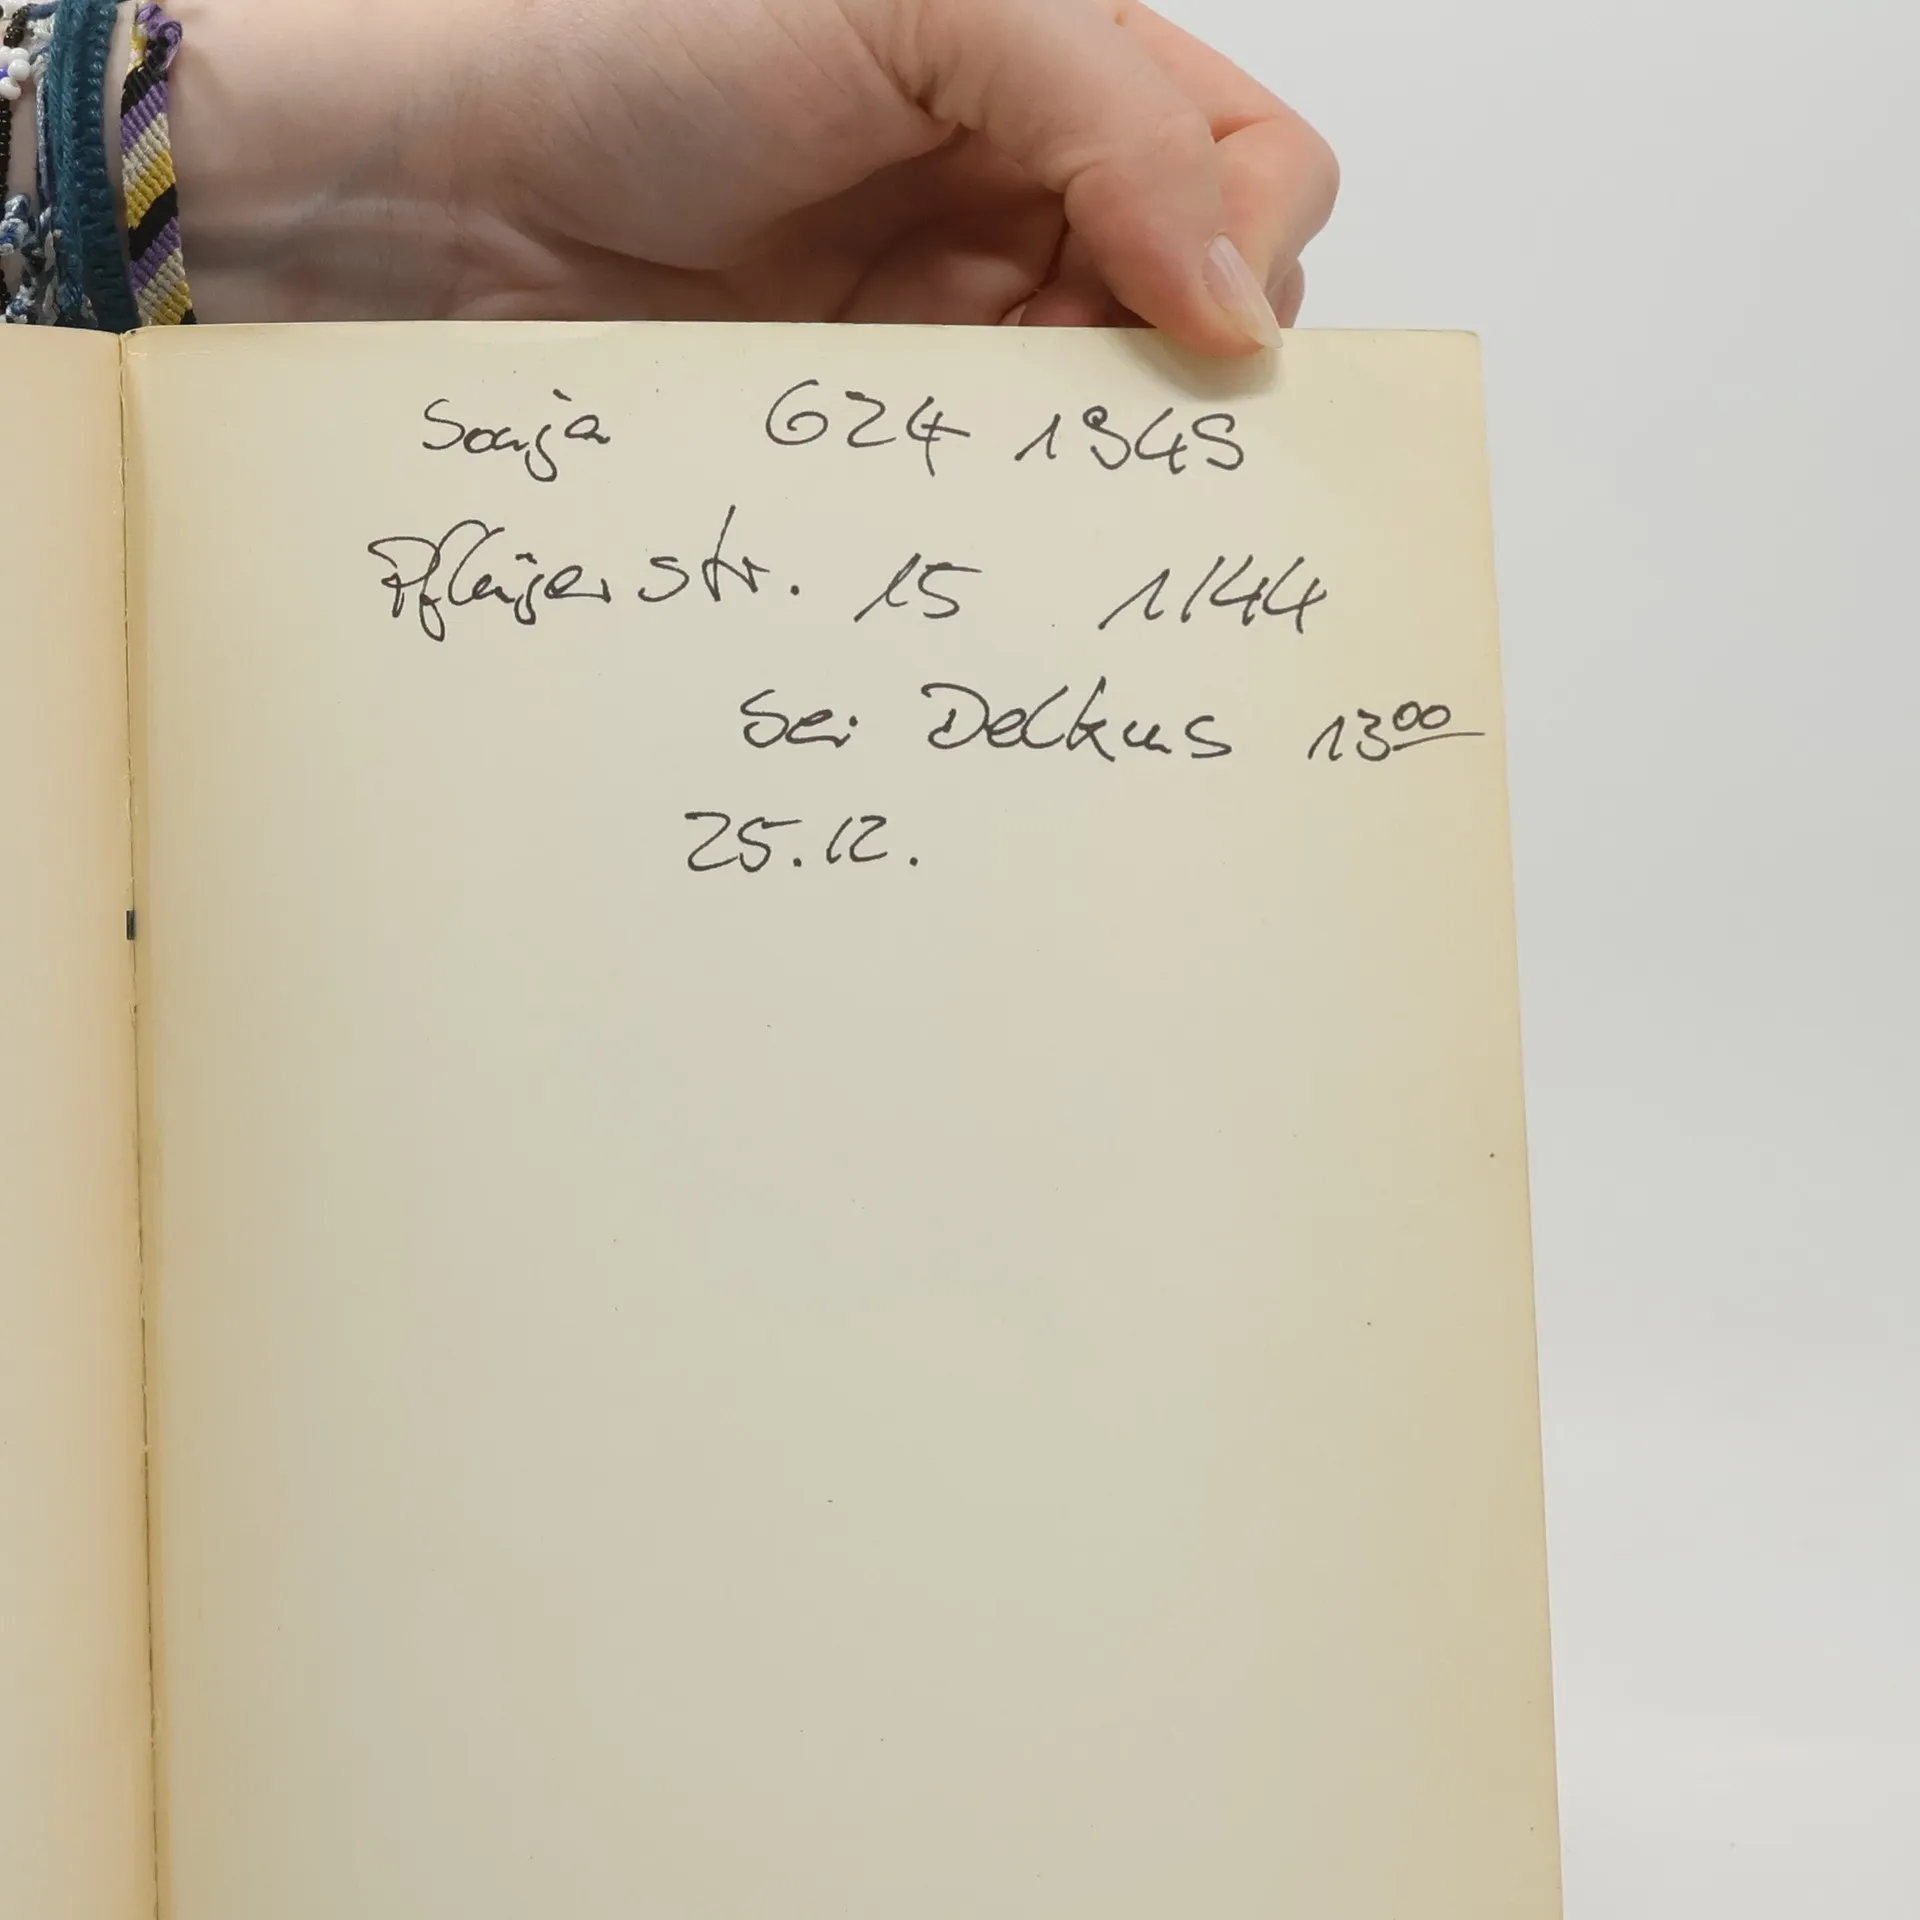 Sonja 624 1949
Pflügerstr. 15 1/44
bei Delkus 13⁰⁰
25.12.